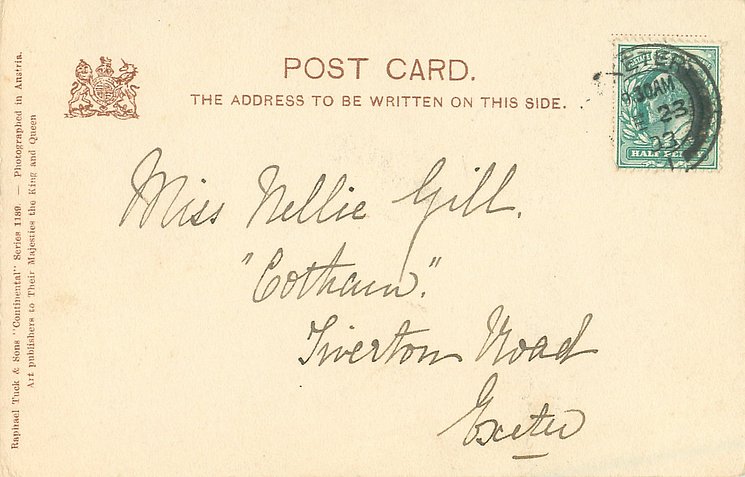 POST CARD.
THE ADDRESS TO BE WRITTEN ON THIS SIDE.
Miss Nellie Gill.
"Cotham."
Tiverton Road
Exeter
Raphael Tuck & Sons "Continental" Series 1189. — Photographed in Austria.
Art publishers to Their Majesties the King and Queen
EXETER
9.30AM
23
03
HALF PE